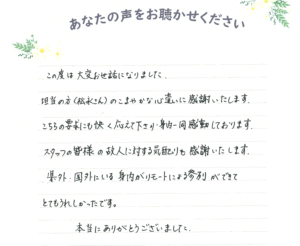 あなたの声をお聴かせください
この度は大変お世話になりました.
担当の方(松永さん)のこまやかな心遣いに感謝いたします.
こちらの要求にも快く応えて下さり、身内一同感動しております.
スタッフの皆様の故人に対する気配りも感謝いたします.
県外・国外にいる身内がリモートによる参列ができて
とてもうれしかったです。
本当にありがとうございました.